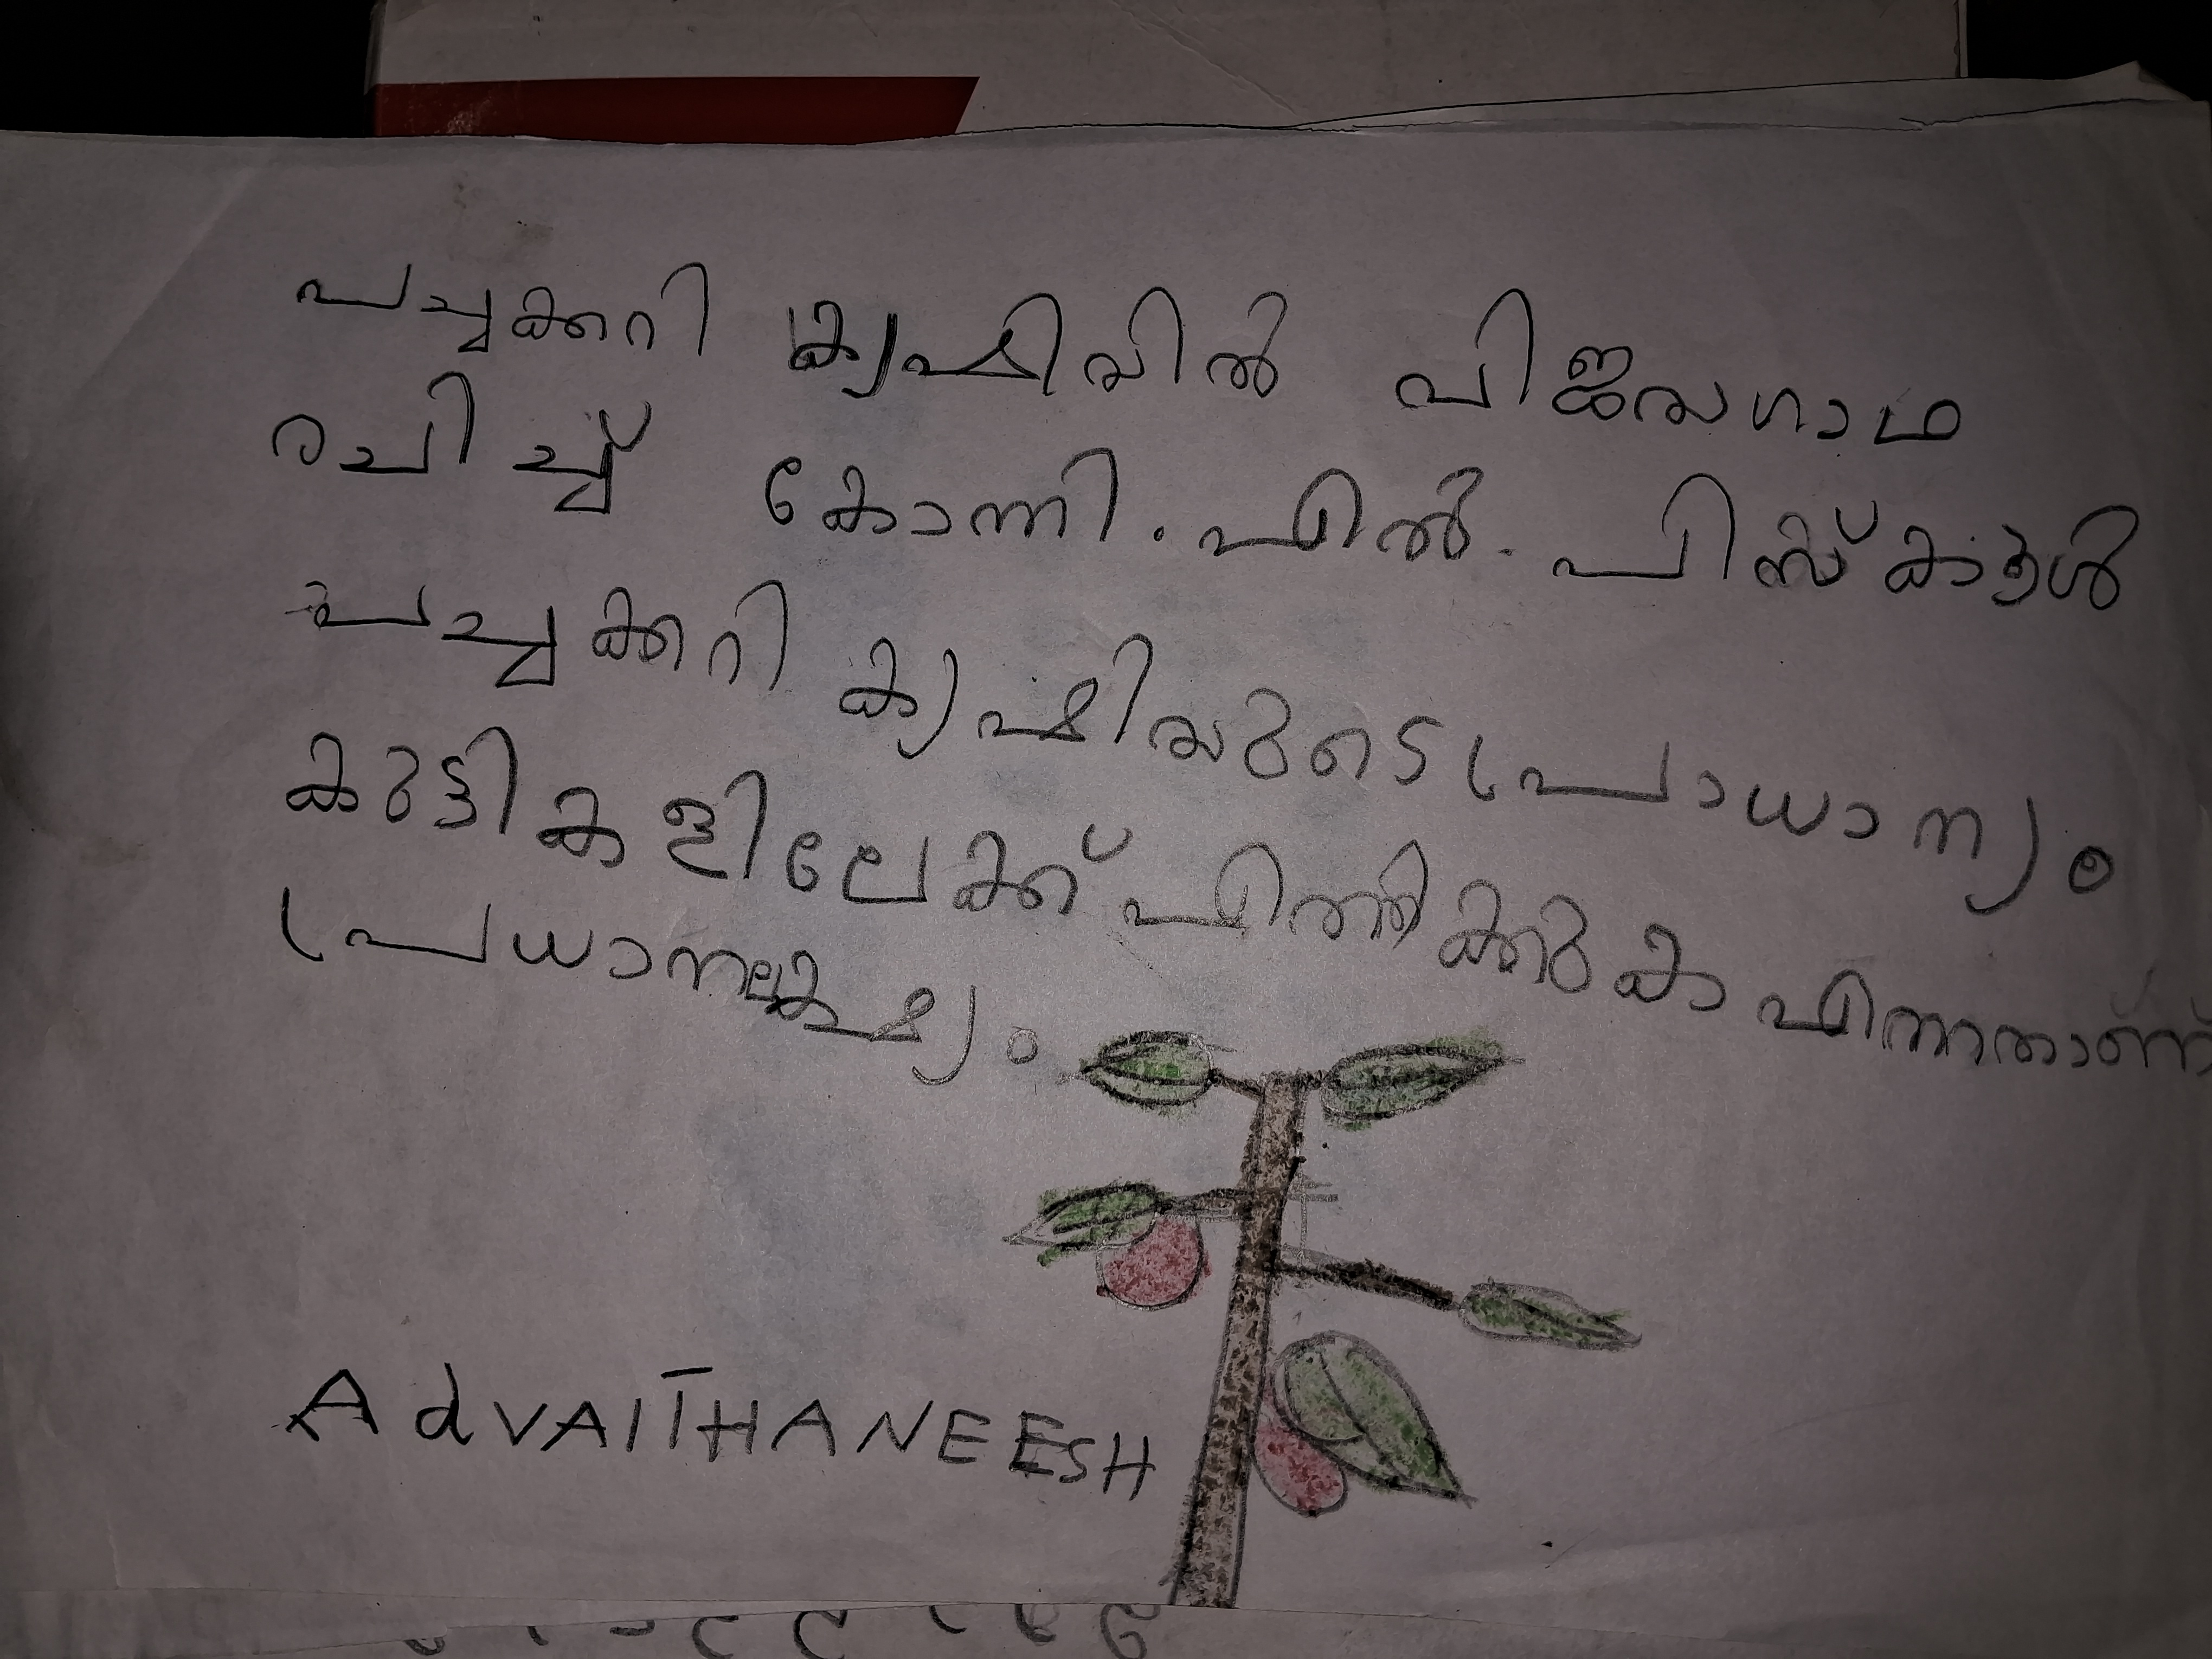 പച്ചക്കറി കൃഷിയിൽ വിജയഗാഥ
രചിച്ച് കോന്നി. എൽ. പി സ്കൂൾ
പച്ചക്കറി കൃഷിയുടെ പ്രാധാന്യം
കുട്ടികളിലേക്ക് എത്തിക്കുക എന്നതാണ്
പ്രധാനലക്ഷ്യം
AdVAITHANEESH